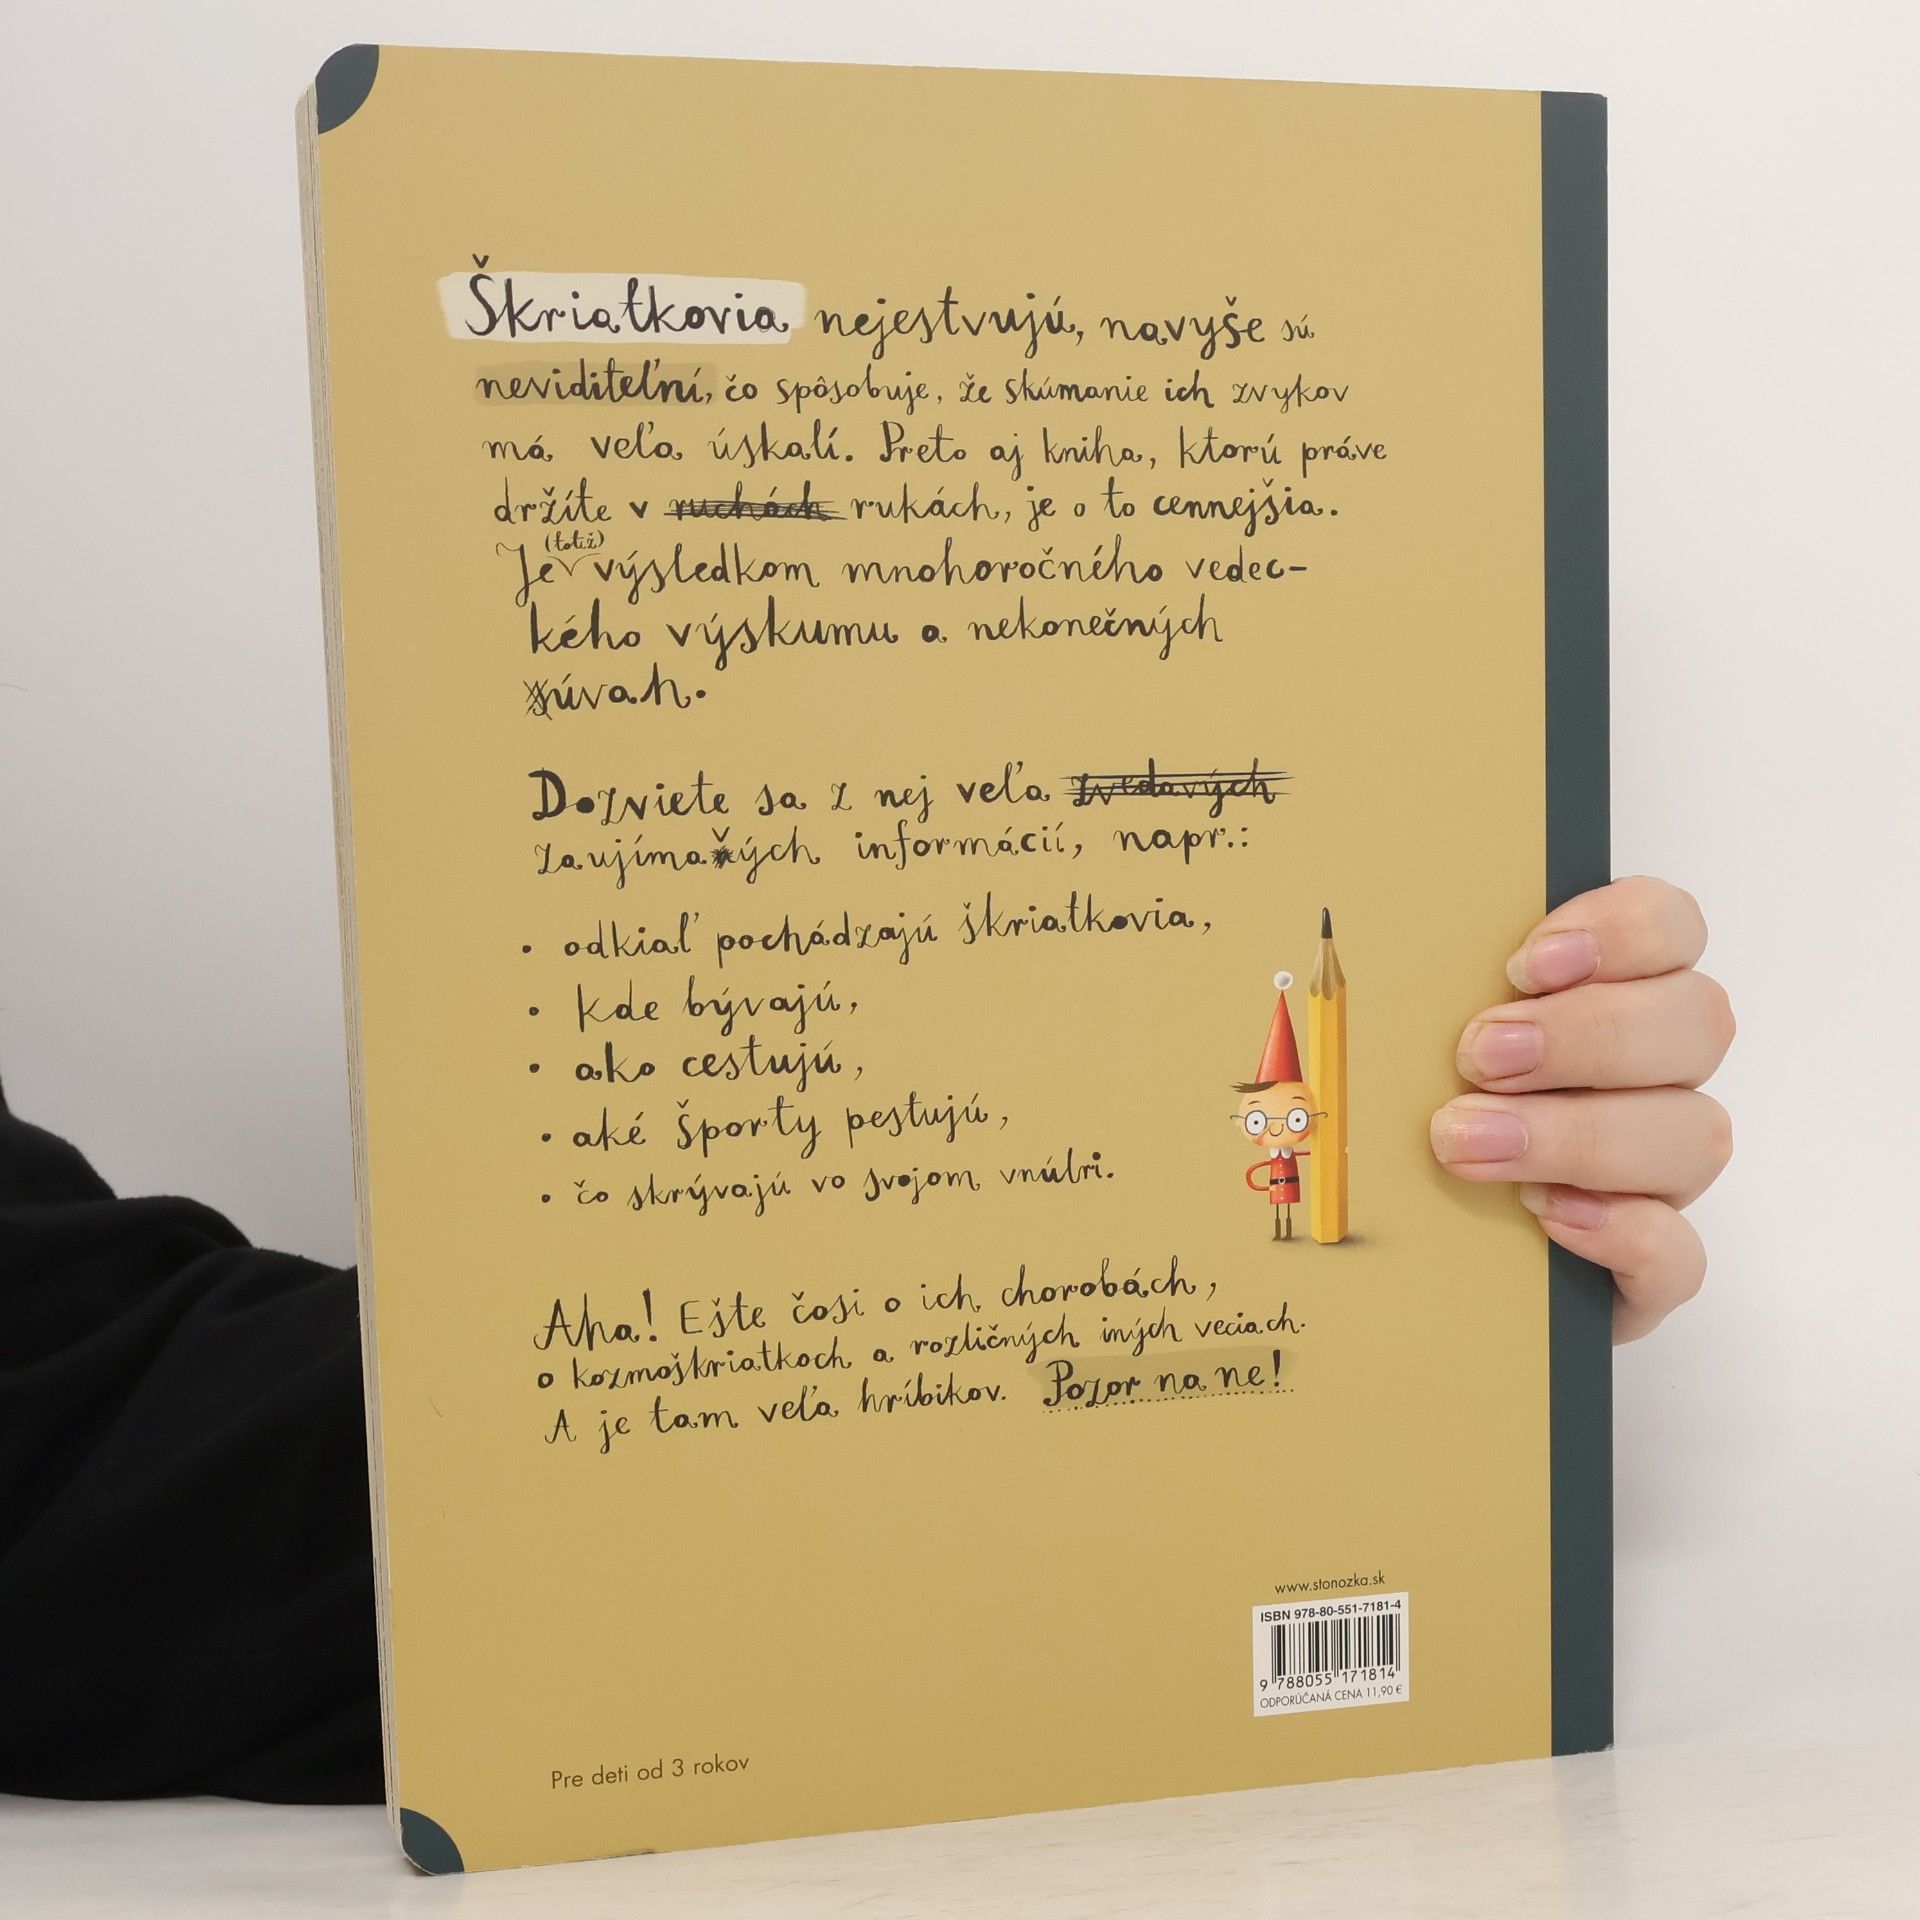 Škriatkovia nejestvujú, navyše sú
neviditeľní, čo spôsobuje, že skúmanie ich zvykov
má veľa úskalí. Preto aj kniha, ktorú práve
držíte v ruchách rukách, je o to cennejšia.
Je (totiž) výsledkom mnohoročného vedec-
kého výskumu a nekonečných
súvah.
Dozviete sa z nej veľa zvedavých
zaujímavých informácií, napr.:
• odkiaľ pochádzajú škriatkovia,
• kde bývajú,
• ako cestujú,
• aké športy pestujú,
• čo skrývajú vo svojom vnútri.
Aha! Ešte čosi o ich chorobách,
o kozmoškriatkoch a rozličných iných veciach.
A je tam veľa hríbikov. Pozor na ne!
www.stonozka.sk
ISBN 978-80-551-7181-4
9 788055 171814
ODPORÚČANÁ CENA 11,90 €
Pre deti od 3 rokov